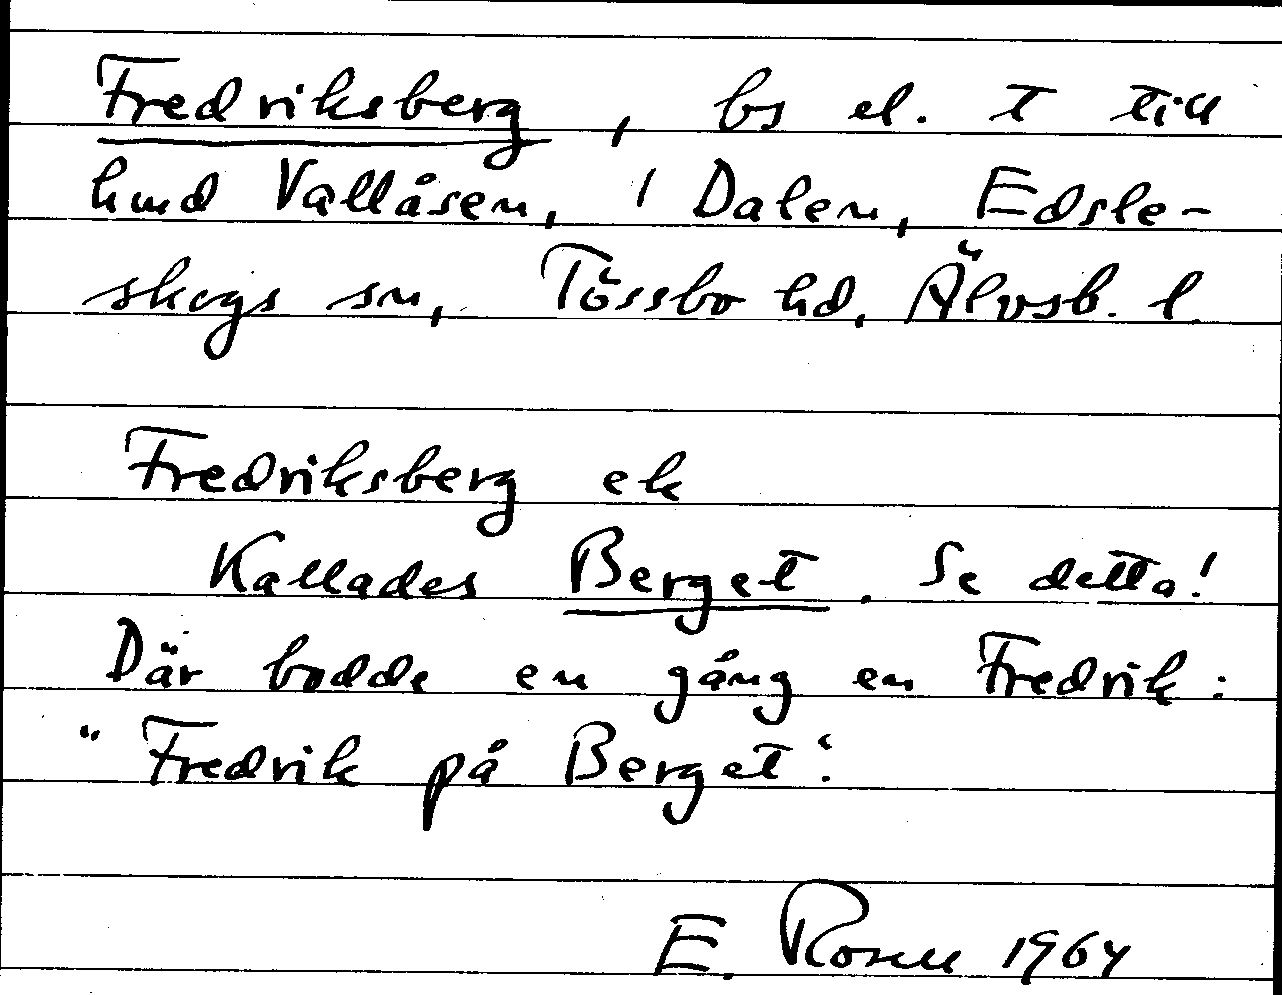 Fredriksberg, bs el. t till
hmd Vallåsen, 1 Dalen, Edsle-
skogs sn, Tössbo hd, Älvsb. l.
Fredriksberg ek
Kallades Berget. Se detta!
Där bodde en gång en Fredrik:
"Fredrik på Berget".
E. Rosell 1964